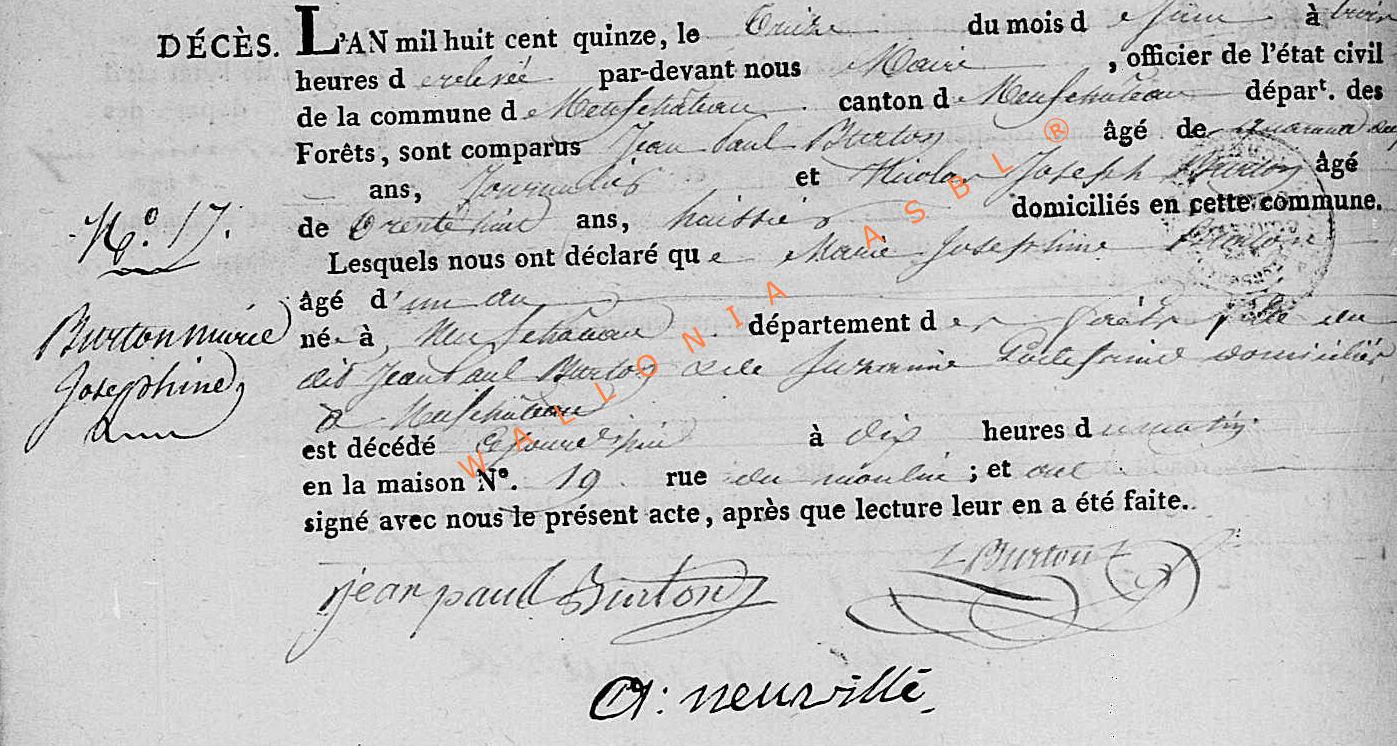 DÉCÈS. L'AN mil huit cent quinze, le onze du mois de juin à trois
heures de relevée par-devant nous Maire , officier de l'état civil
de la commune de Neufchâteau canton de Neufchâteau départ. des
Forêts, sont comparus Jean Paul Burton âgé de quarante
ans, Journalier et Nicolas Joseph Burton âgé
de trente huit ans, huissier domiciliés en cette commune.
Lesquels nous ont déclaré que Marie Josephine Burton
âgé d'un an
née à Neufchâteau département des forêts fille du
dit Jean Paul Burton et de Suzanne domiciliés
à Neufchâteau
est décédé à dix heures du matin
en la maison N°. 19 rue du moulin ; et ont
signé avec nous le présent acte, après que lecture leur en a été faite.
N.° 17.
Burton marie
Josephine
jean paul Burton
Burton
A: neuville
WALLONIA ASBL ®